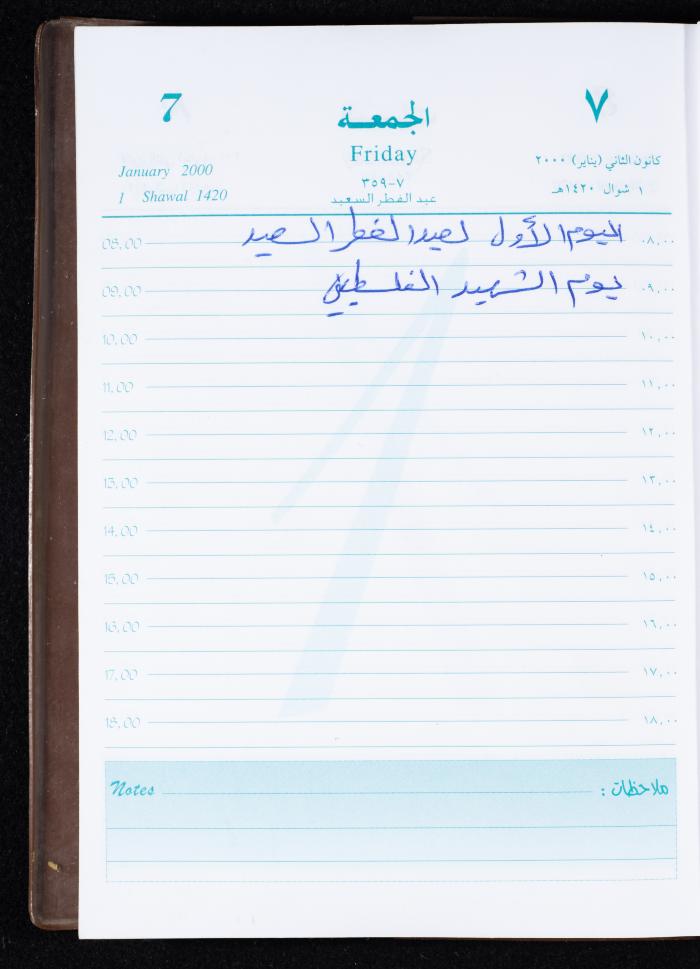 7
الجمعة
٧
Friday
January 2000
كانون الثاني (يناير) ٢٠٠٠
٧-٣٥٩
1 Shawal 1420
١ شوال ١٤٢٠هـ
عيد الفطر السعيد
08,00 اليوم الأول لعيد الفطر السعيد ٠٨,٠٠
09,00 يوم الشهيد الفلسطيني ٠٩,٠٠
10,00 ١٠,٠٠
11,00 ١١,٠٠
12,00 ١٢,٠٠
13,00 ١٣,٠٠
14,00 ١٤,٠٠
15,00 ١٥,٠٠
16,00 ١٦,٠٠
17,00 ١٧,٠٠
18,00 ١٨,٠٠
Notes ملاحظات :